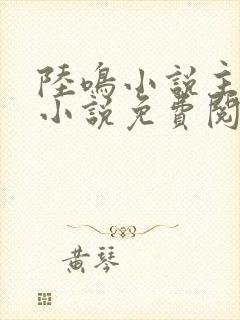 陸鳴小説主
小説免費閱
黃琴